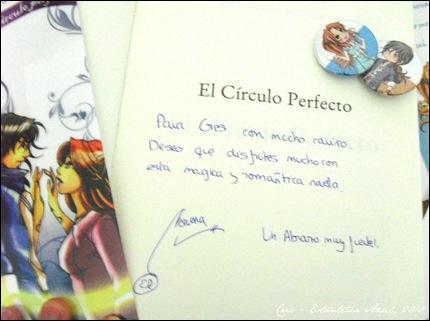 El Círculo Perfecto
Para Ges con mucho cariño.
Deseo que disfrutes mucho con
esta mágica y romántica novela.
Un Abrazo muy fuerte!